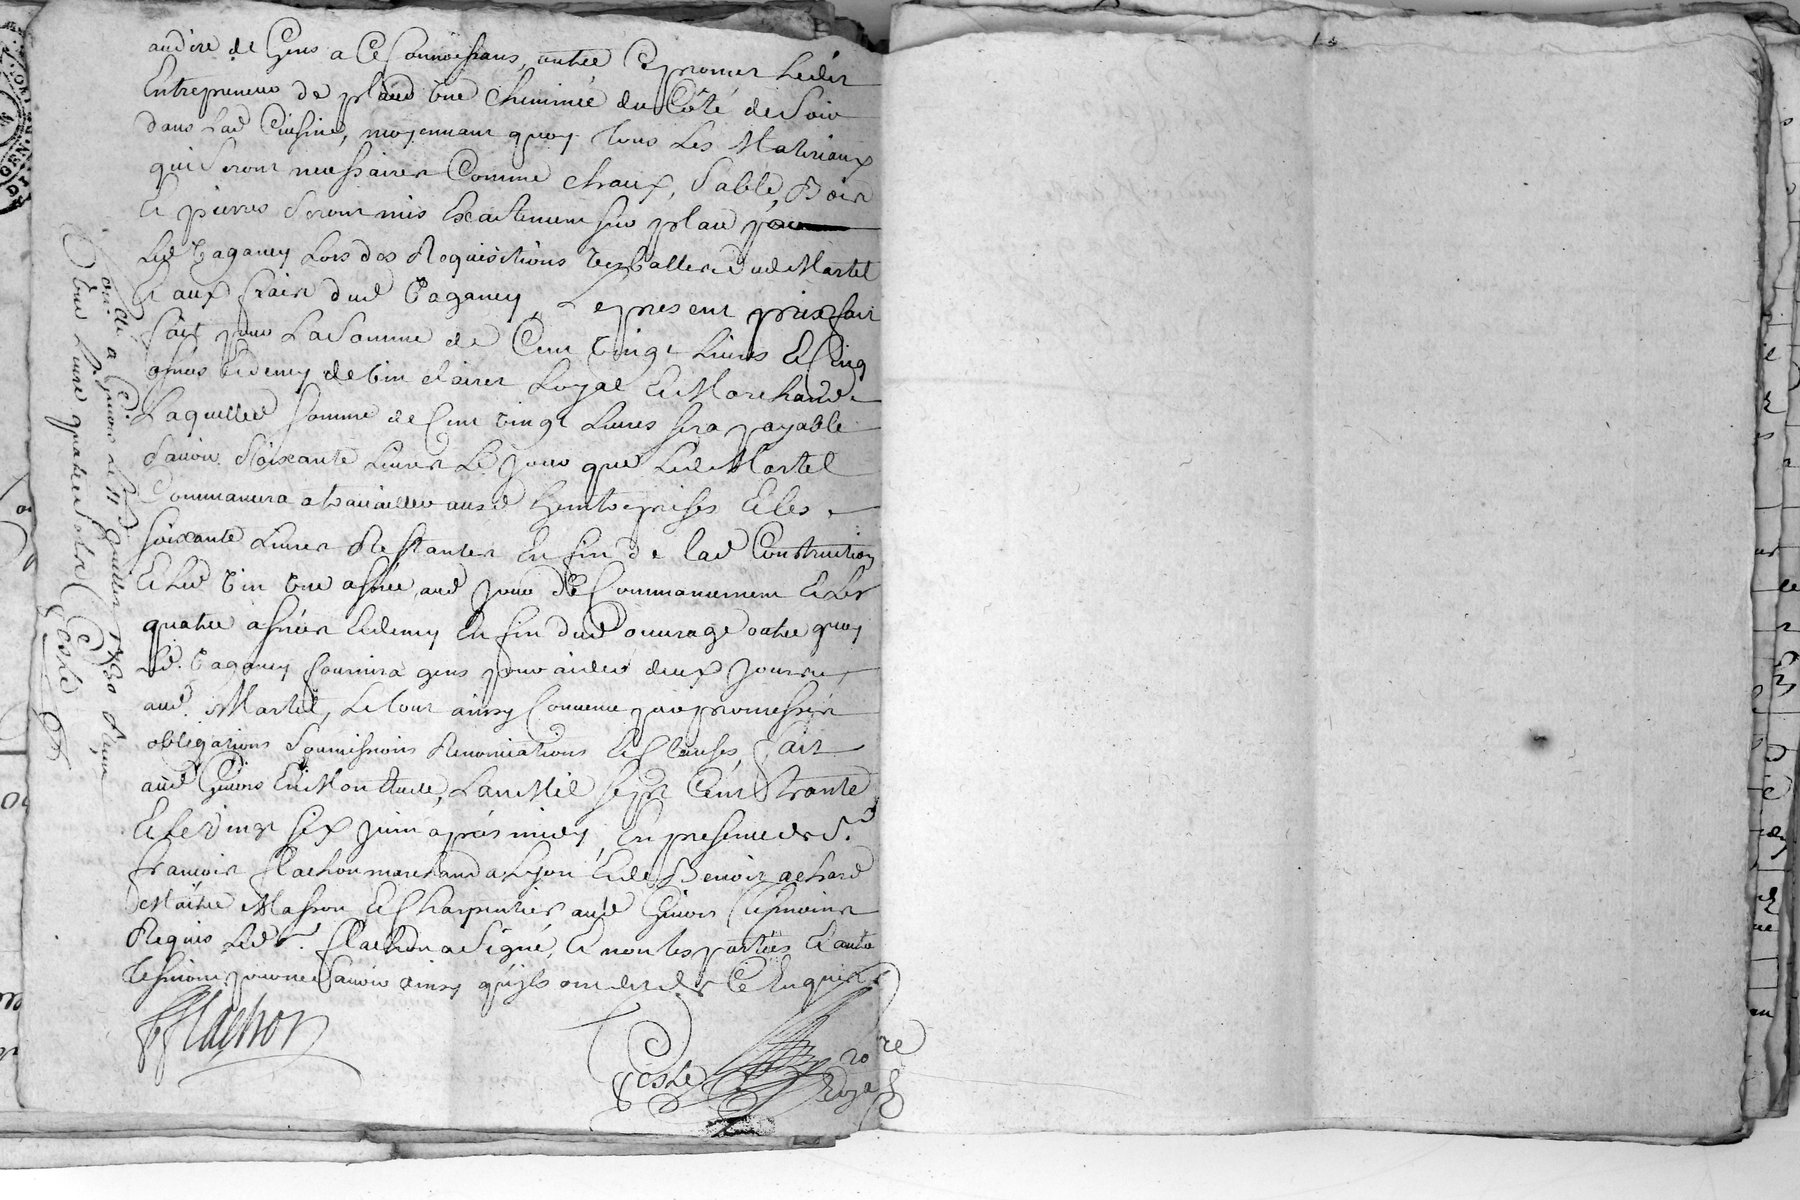 audire de Gens a Ce Connoissans, outre Ce promet Ledit
Entrepreneur de placer Une Cheminée du Côté de Soir
dans Lad Cuisine, moyennant quoy Tous Les Materiaux
qui Seront necessaires Comme chaux, Sable, Bois
Et pierres Seront mis Exactement sur place par
Led Paganey Lors des Requisitions Verballes dud Martel
Et aux frais dud Paganey, Le present prixfait
fait pour La Somme de Cent Vingt Livres Et Cinq
asnées Et demy de Vin clairet Loyal Et Marchand
Laquelle Somme de Cent Vingt Livres sera payable
Savoir Soixante Livres Le Jour que Led Martel
Commancera a travailler aused Entreprises Et les
soixante Livres Restantes En fin de lad Construction
Et Led Vin Une asnée aud Jour de Commancement Et Les
quatre asnées Et demy En fin dud ouvrage outre quoy
Led. Paganey fournira gens pour aider deux Journées
aud. Martel, Le tout ainsy Convenu par promesses
obligations Soumissions Renonciations Et Clauses, fait
aud Givors En Mon Etude, L'an Mil Sept Cent Trante
Et Le Vingt six Juin après midy, En presence de S.r
francois flachon marchand a Lyon Et de Benoit achard
Maître Masson Et Charpentier aud Givors Tesmoins
Requis Led S.r flachon a Signé, Et non les parties Et autre
Tesmoin pour ne Savoir ainsy qu'ils ont dit de Ce Enquis
F flachon
Coste
no.re
Royal
Con.lé a Givors le 11 Juillet 1730 Reçu
Une Livre quatre sols Coste